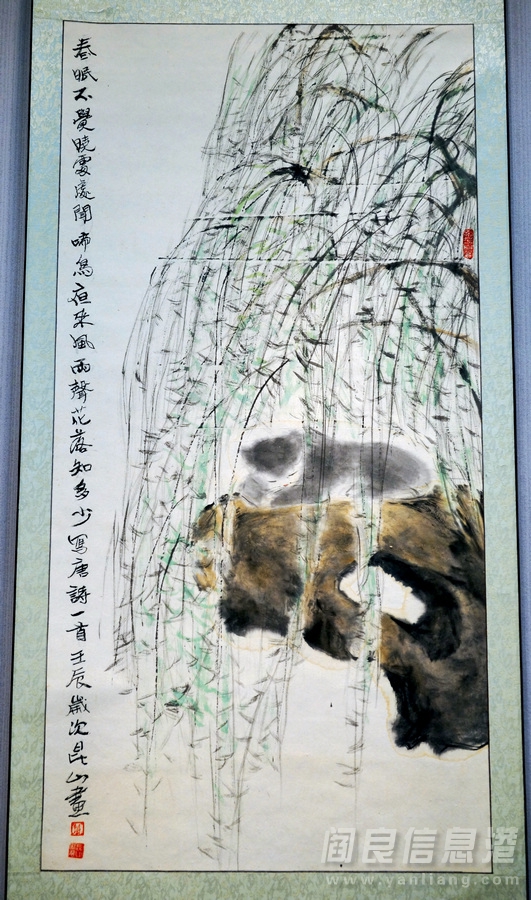 春眠不覺曉處處聞啼鳥夜来風雨聲花落知多少寫唐詩一首壬辰歲次昆山畫
阎良信息港
www.yanliang.com